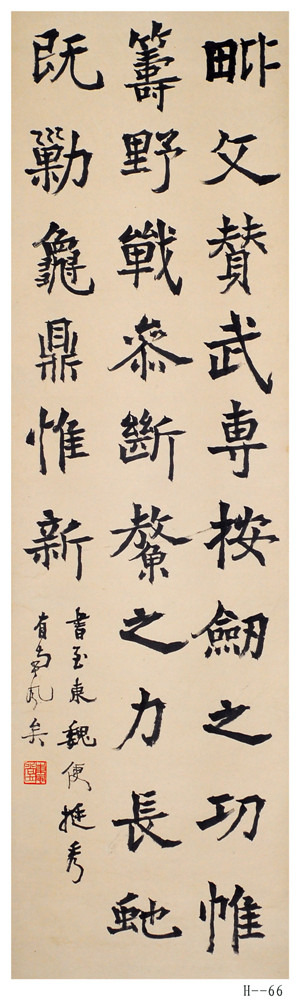 毗文贊武專按劒之功帷
籌野戰參斷鰲之力長虵
既勦龜鼎惟新
書至東魏便挺秀
有風矣
H--66